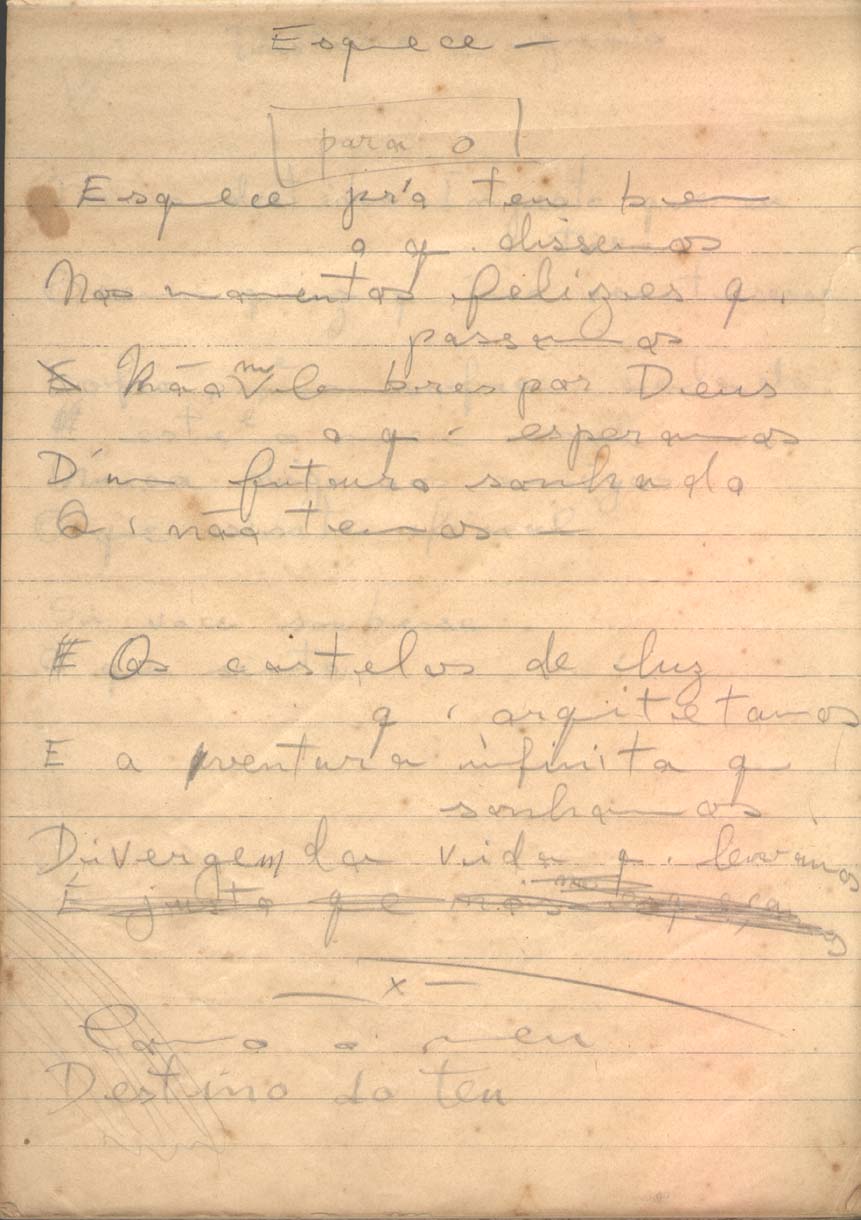 Esquece —
para o
Esquece pr'a teu bem
o q. dissemos
Nos momentos felizes q.
passamos
Não lembres por Deus
o q. esperamos
D'um futuro sonhado
Q. não temos —
E Os castelos de luz
q. arquitetamos
E a ventura infinita q.
sonhamos
Divergem da vida q. levamos
É justo que nos esqueçamos
— x —
Como o meu
Destino do teu